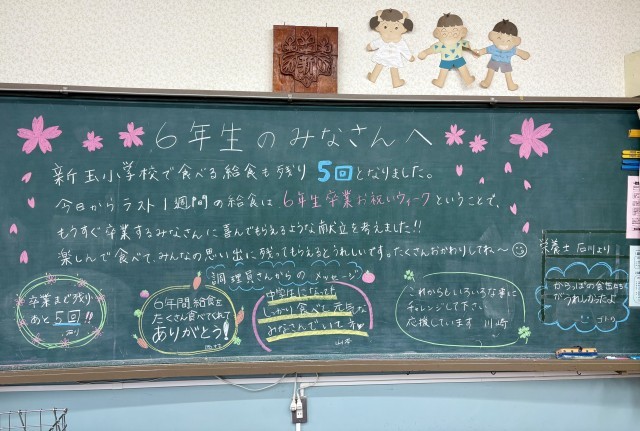 6年生のみなさんへ
新玉小学校で食べる給食も残り 5回となりました。
今日からラスト1週間の給食は 6年生卒業お祝いウィークということで、
もうすぐ卒業するみなさんに喜んでもらえるような献立を考えました!!
楽しんで食べて、みんなの思い出に残ってもらえるとうれしいです。たくさんおかわりしてね〜
栄養士 石川より
調理員さんからの メッセージ
卒業まで残り
あと5回!!
6年間給食を
たくさん食べてくれて
ありがとう!
中学生になっても
しっかり食べて元気な
みなさんでいて
山本
これからもいろいろな事に
チャレンジして下さい
応援しています 川崎
からっぽの食缶が
うれしかったよ
ゴトウ